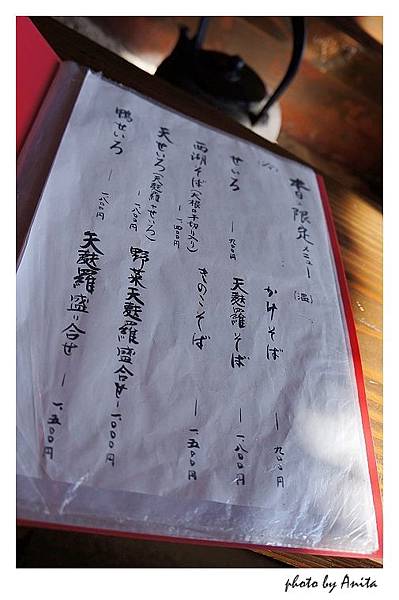 春の限定メニュー
(温)
かけそば ー 九〇〇円
天麩羅そば ー 一、八〇〇円
きのこそば ー 一、五〇〇円
せいろ ー 九〇〇円
西湖そば(大根の千切り入り) ー 一、二〇〇円
天せいろ(天麩羅+せいろ) ー 一、八〇〇円
鴨せいろ ー 一、八〇〇円
野菜天麩羅盛合せ ー 一、〇〇〇円
天麩羅盛り合せ ー 一、五〇〇円
photo by Anita